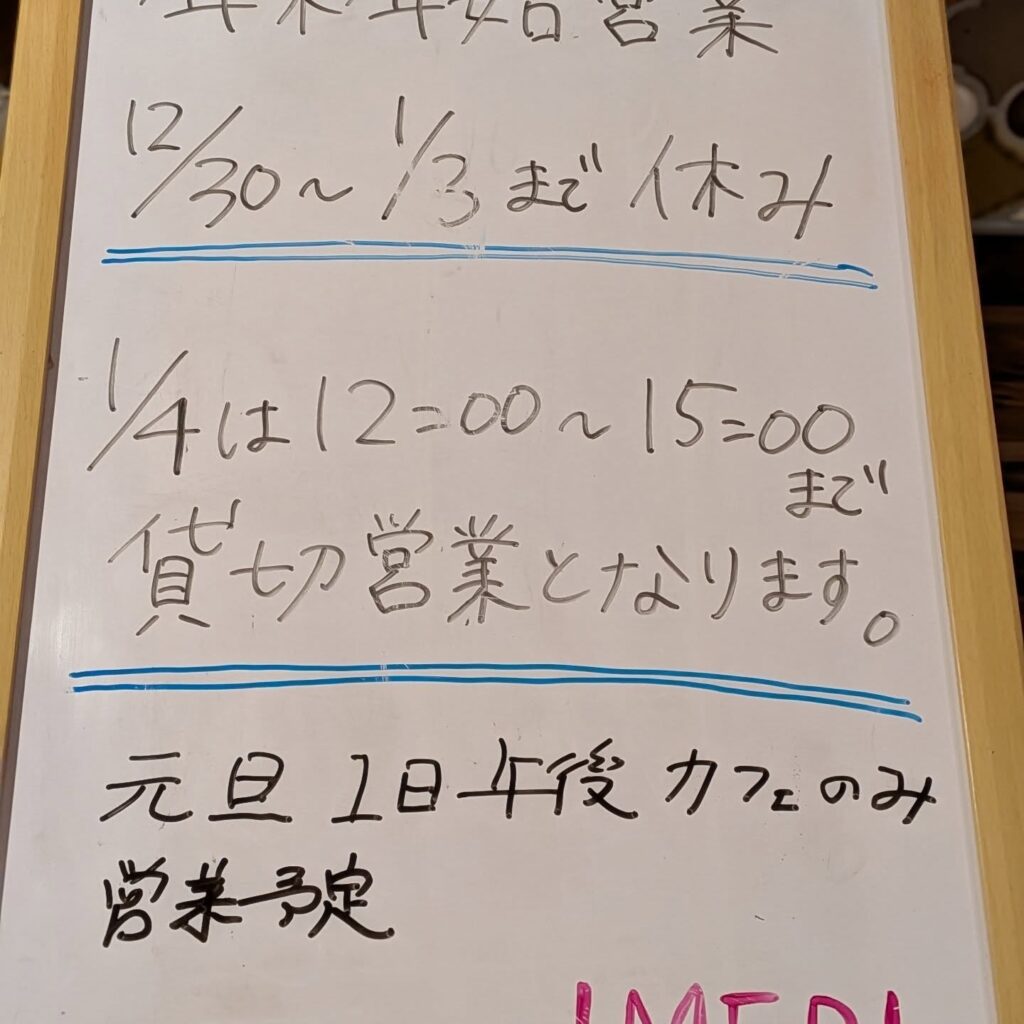 年末年始営業
12/30～1/3まで休み
1/4は12=00～15=00
まで
貸切営業となります。
元旦 1日年後カフェのみ
営業予定
IMEDI